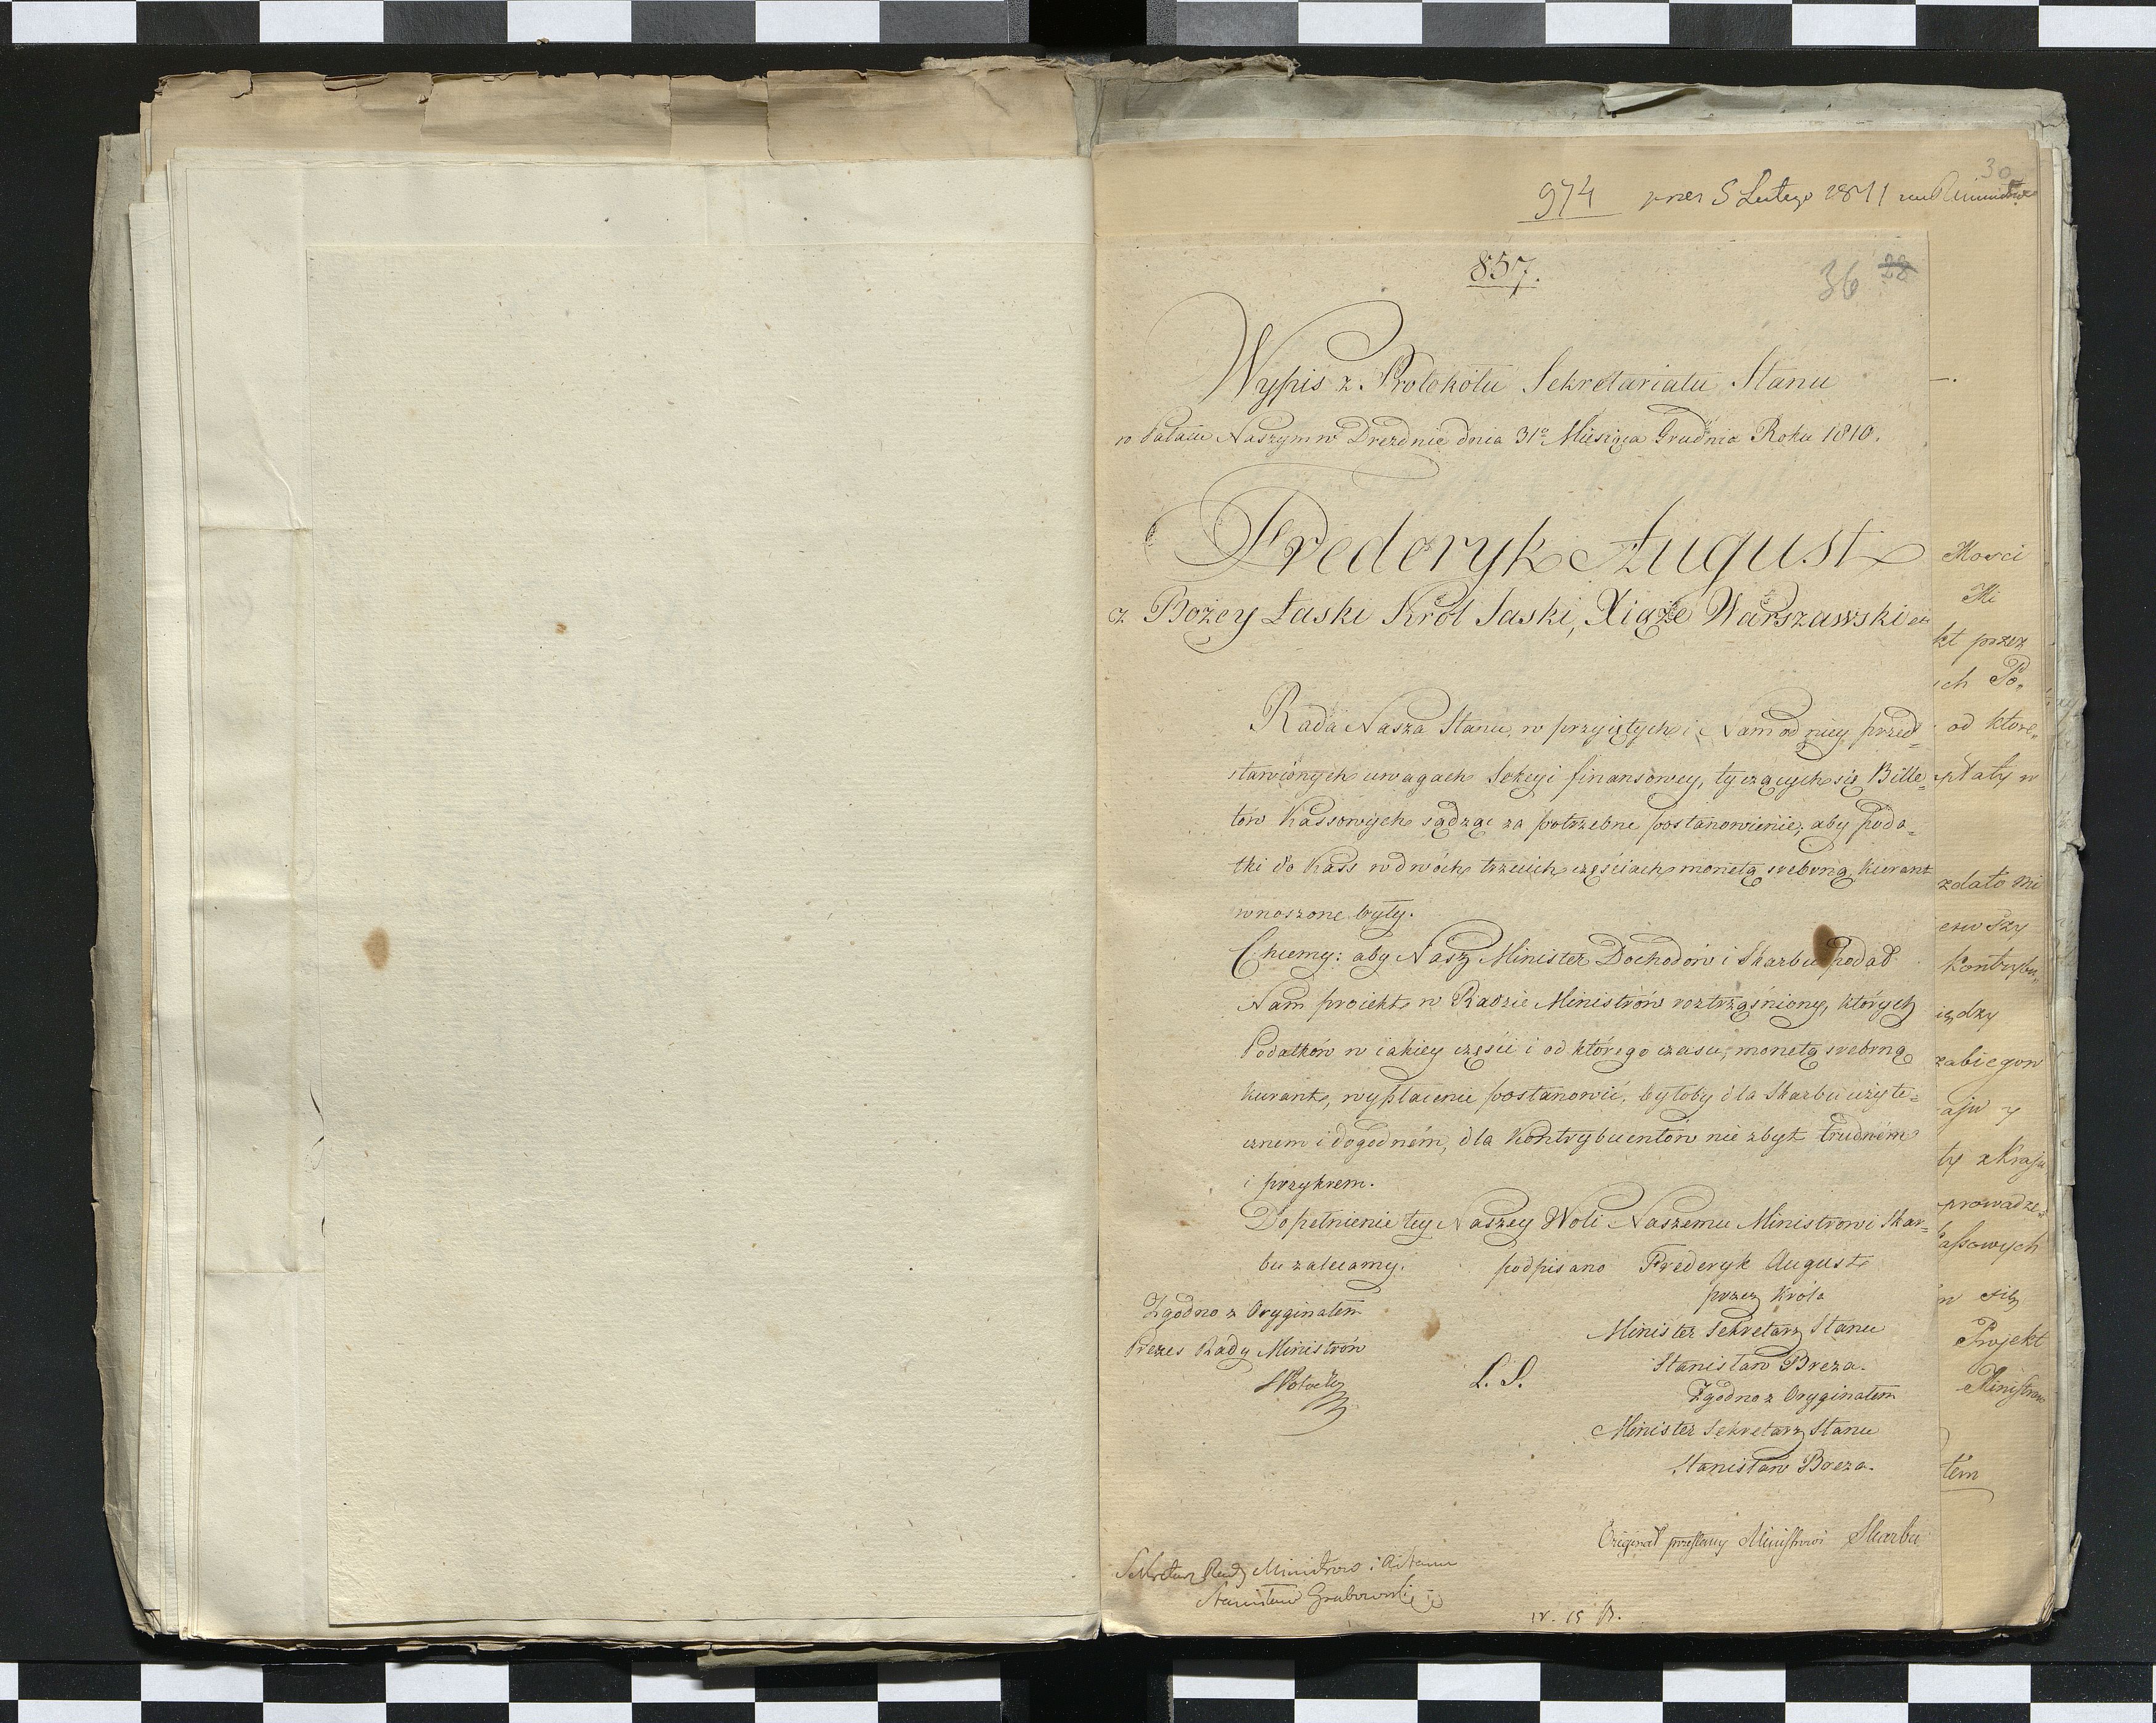 30
974 5 Lutego 1811
857.
36 28
Wypis z Protokółu Sekretariatu Stanu
w Pałacu Naszym w Dreźnie dnia 31º Miesiąca Grudnia Roku 1810.
Frederyk August
z Bożey Łaski Król Saski, Xiąże Warszawski etc
Rada Nasza Stanu, w przyiętych i Nam od niey przed=
stawionych uwagach Sekcyi finansowey, tyczących się Bille=
tów Kassowych sądząc za potrzebne postanowienie; aby poda=
tki do Kass w dwóch trzecich częściach monetą srebrną kurant
wnoszone były.
Chcemy: aby Nasz Minister Dochodów i Skarbu podał
Nam proiekt w Radzie Ministrów roztrząśniony, których
Podatków w iakiey części i od którego czasu, monetą srebrną
kurant, wypłacenie postanowić, byłoby dla Skarbu użyte=
cznem i dogodném, dla Kontrybuentów nie zbyt trudném
i przykrem.
Dopełnienie tey Naszey Woli Naszemu Ministrowi Skar=
bu zalecamy. podpisano Frederyk August
przez Króla
Minister Sekretarz Stanu
Stanisław Breza.
Zgodno z Oryginałem
Minister Sekretarz Stanu
Stanisław Breza.
L. S.
Zgodno z Oryginałem
Prezes Rady Ministrów
SPotocki
Original przesłany Ministrowi Skarbu
Sekretarz Rady Ministrow i Stanu
Stanisław Grabowski
Mości
Mi
kt przez
ich Po=
od które=
płaty w
zdało mi
erwszy
kontrybu=
iędzy
zabiegow
aju y
ty z Kraju
prowadze=
assowych
w się
Projekt
Ministrow
łem